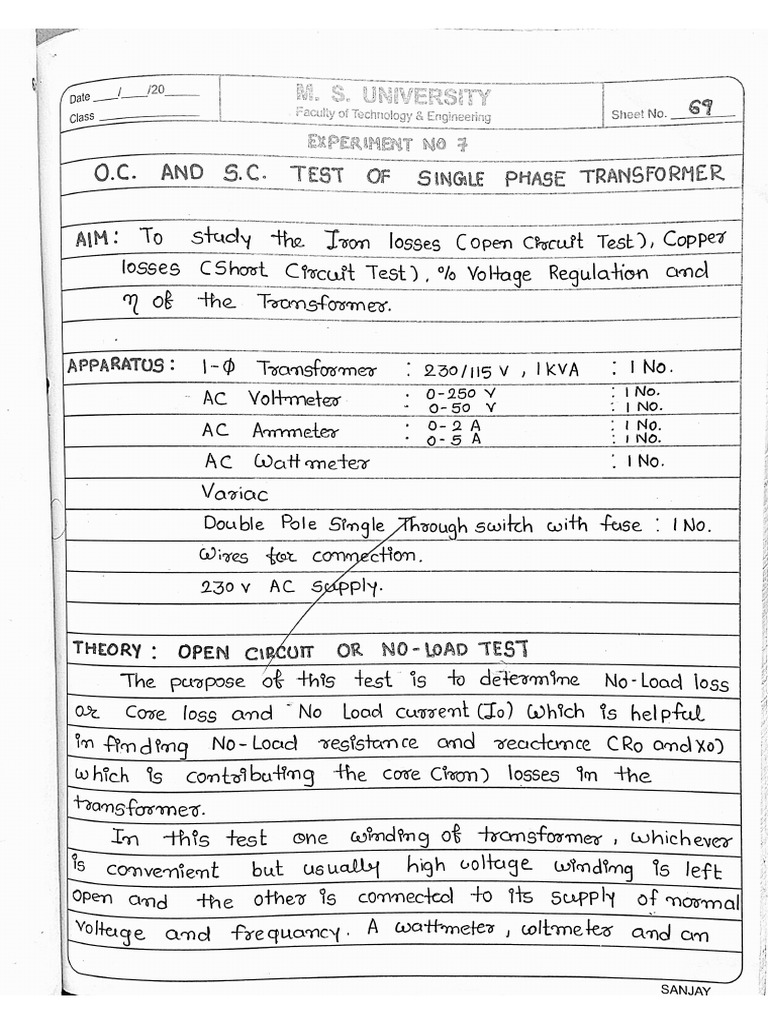 Date ___/___/20____
M. S. UNIVERSITY
Sheet No. 69
Class
Faculty of Technology & Engineering
EXPERIMENT NO 7
O.C. AND S.C. TEST OF SINGLE PHASE TRANSFORMER
AIM: To study the Iron losses (Open Circuit Test), Copper
losses (Short Circuit Test), % Voltage Regulation and
η of the Transformer.
APPARATUS: 1-Φ Transformer : 230/115 V, 1 KVA : 1 No.
AC Voltmeter : 0-250 V : 1 No.
: 0-50 V : 1 No.
AC Ammeter : 0-2 A : 1 No.
: 0-5 A : 1 No.
AC Wattmeter : 1 No.
Variac
Double Pole Single Through switch with fuse : 1 No.
Wires for connection.
230 V AC Supply.
THEORY: OPEN CIRCUIT OR NO-LOAD TEST
The purpose of this test is to determine No-Load loss
or Core loss and No Load current (Io) Which is helpful
in finding No-Load resistance and reactance (Ro and Xo)
which is contributing the core (iron) losses in the
transformer.
In this test one winding of transformer, whichever
is convenient but usually high voltage winding is left
open and the other is connected to its supply of normal
voltage and frequancy. A wattmeter, voltmeter and an
SANJAY